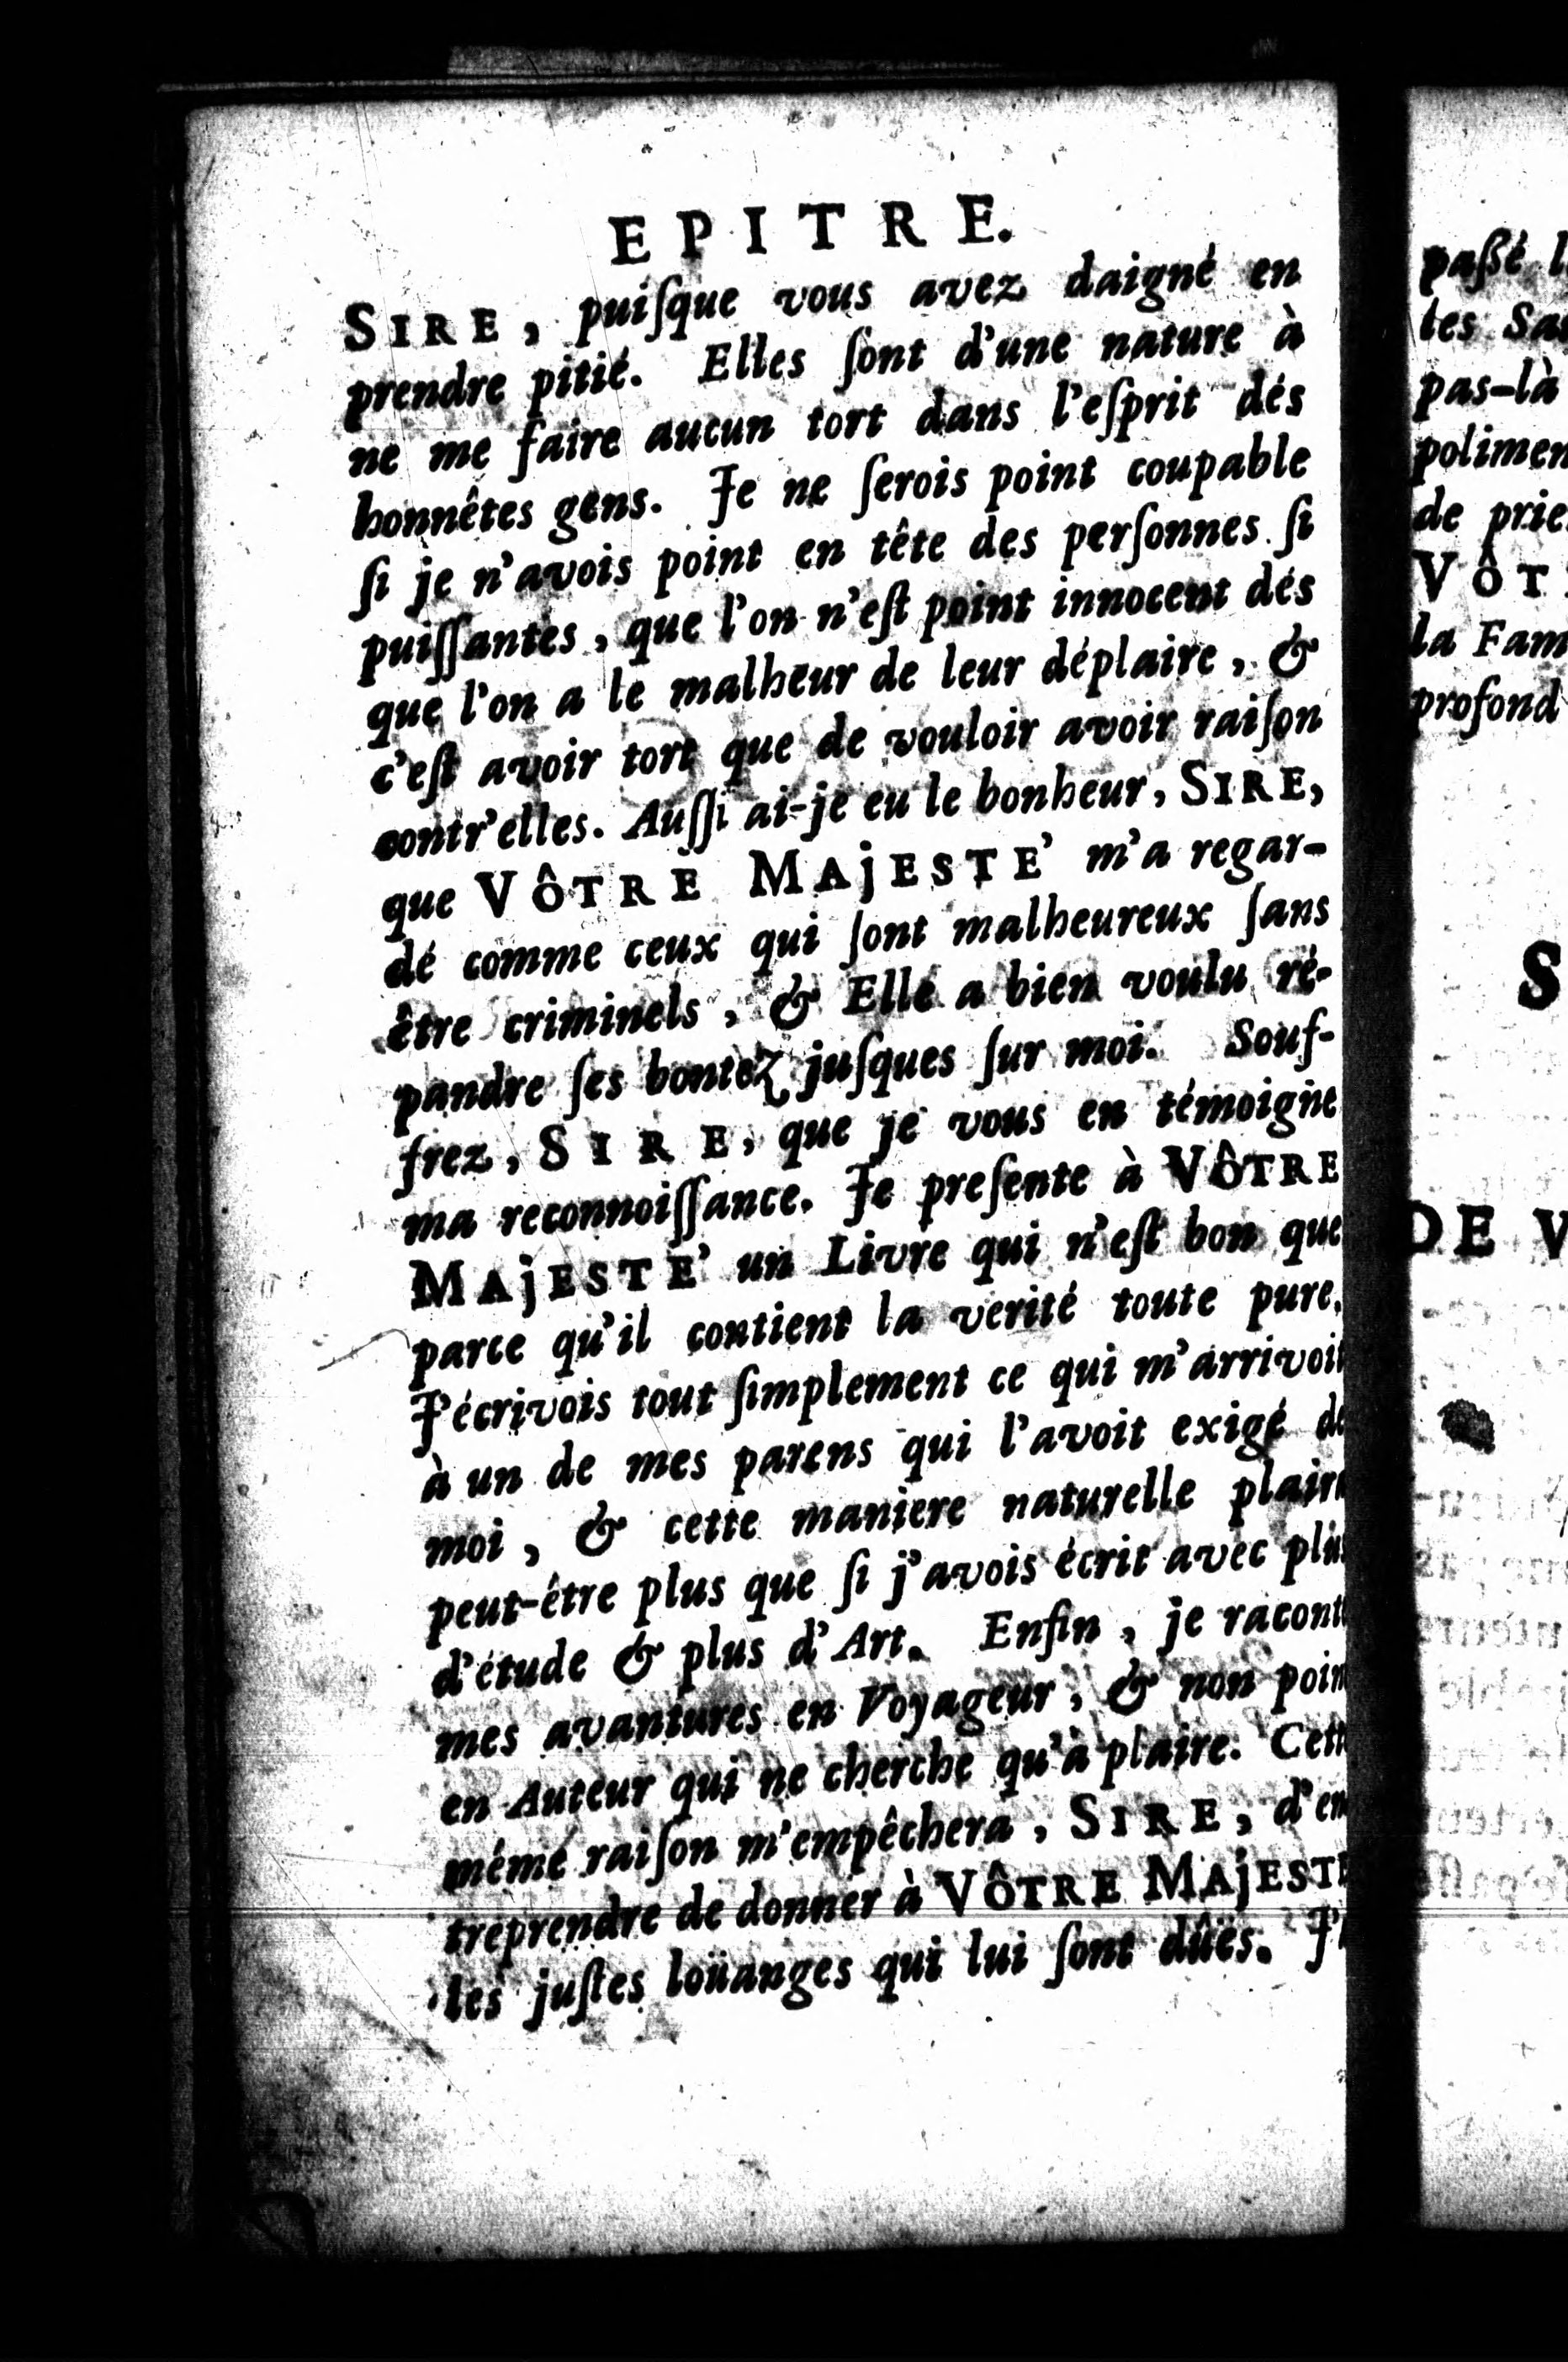 EPITRE.
SIRE, puiſque vous avez daigné en
prendre pitié. Elles ſont d'une nature à
ne me faire aucun tort dans l'eſprit dés
honnêtes gens. Je ne ſerois point coupable
ſi je n'avois point en tête des perſonnes ſi
puiſſantes, que l'on n'eſt point innocent dés
que l'on a le malheur de leur déplaire, &
c'eſt avoir tort que de vouloir avoir raiſon
contr'elles. Auſſi ai-je eu le bonheur, SIRE,
que VÔTRE MAjESTE' m'a regar-
dé comme ceux qui ſont malheureux ſans
être criminels, & Elle a bien voulu ré-
pandre ſes bontez juſques ſur moi. Souf-
frez, SIRE, que je vous en témoigne
ma reconnoiſſance. Je preſente à VÔTRE
MAjESTE' un Livre qui n'eſt bon que
parce qu'il contient la verité toute pure.
J'écrivois tout ſimplement ce qui m'arrivoit
à un de mes parens qui l'avoit exigé de
moi, & cette maniere naturelle plaira
peut-être plus que ſi j'avois écrit avec plus
d'étude & plus d'Art. Enfin, je raconte
mes avantures en Voyageur, & non point
en Auteur qui ne cherche qu'à plaire. Cette
méme raiſon m'empêchera, SIRE, d'en
treprendre de donner à VÔTRE MAjESTE
les juſtes loüanges qui lui ſont dûës.
paßé
tes
pas-là
de
la
profond
S
DE V